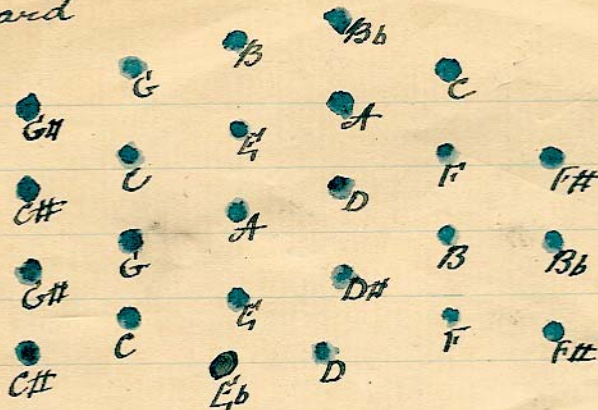 ard
Bb
B
G C
G# A
E
C F F#
C# D
A
G B Bb
G# D#
E
C F F#
C# D
Eb